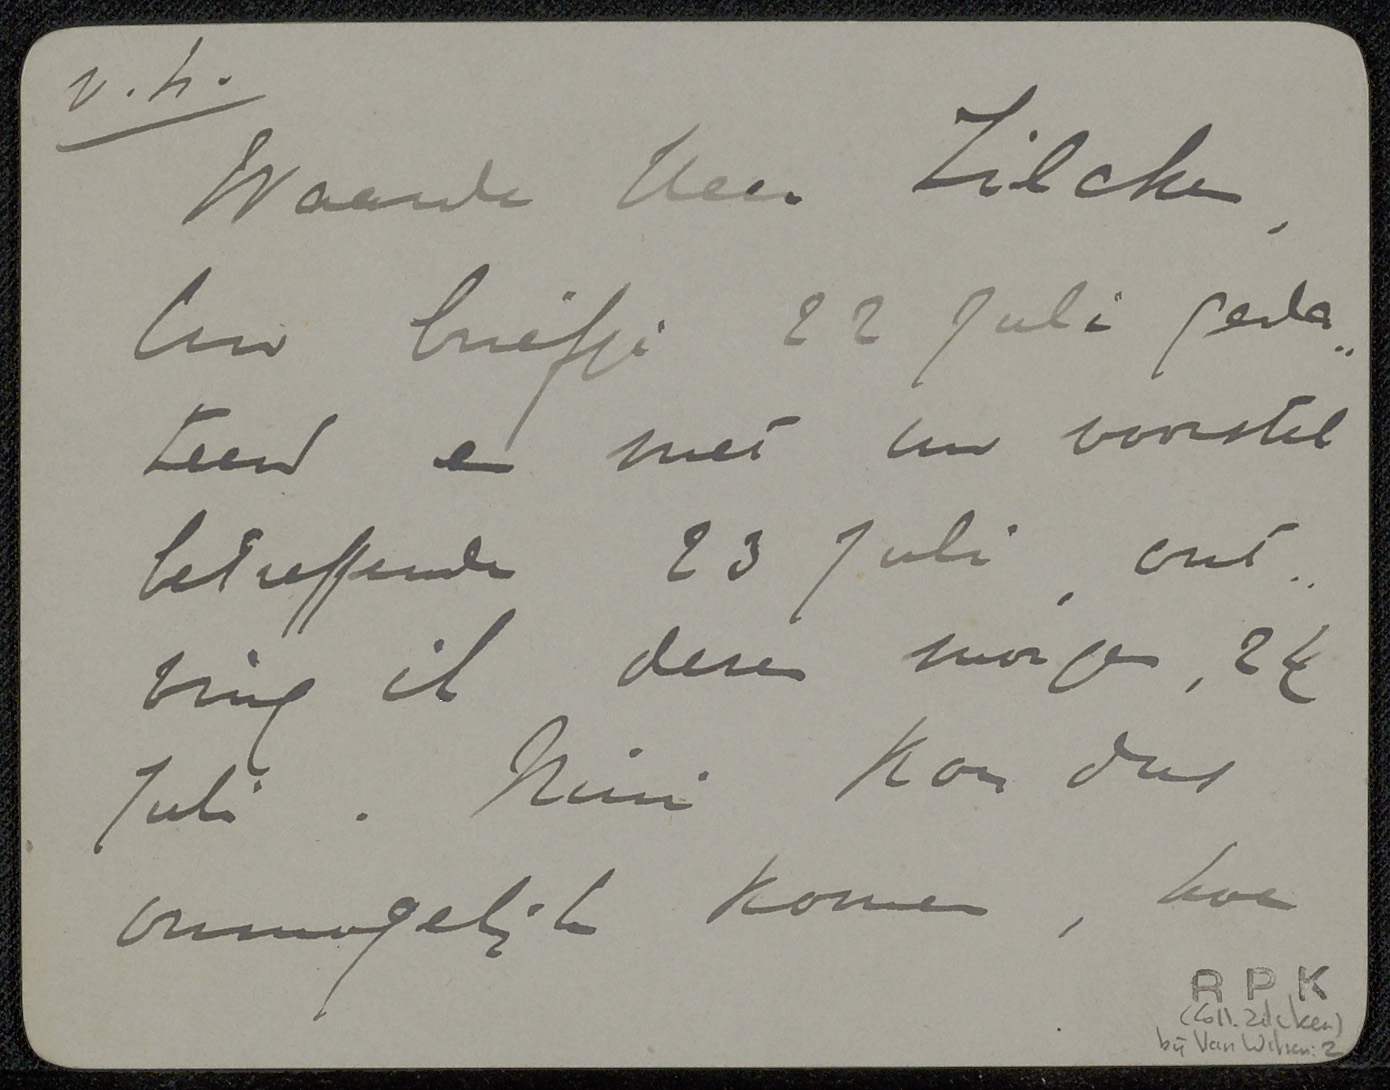 v. h.
Waarde Heer Zilcken,
Uw briefje 22 Juli geda„
teerd en met uw voorstel
betreffende 23 Juli, ont„
ving ik dezen morgen, 24
Juli. Nini kon dus
onmogelijk komen, hoe
R P K
(Coll. Zilcken)
bij Van Witsen: 2